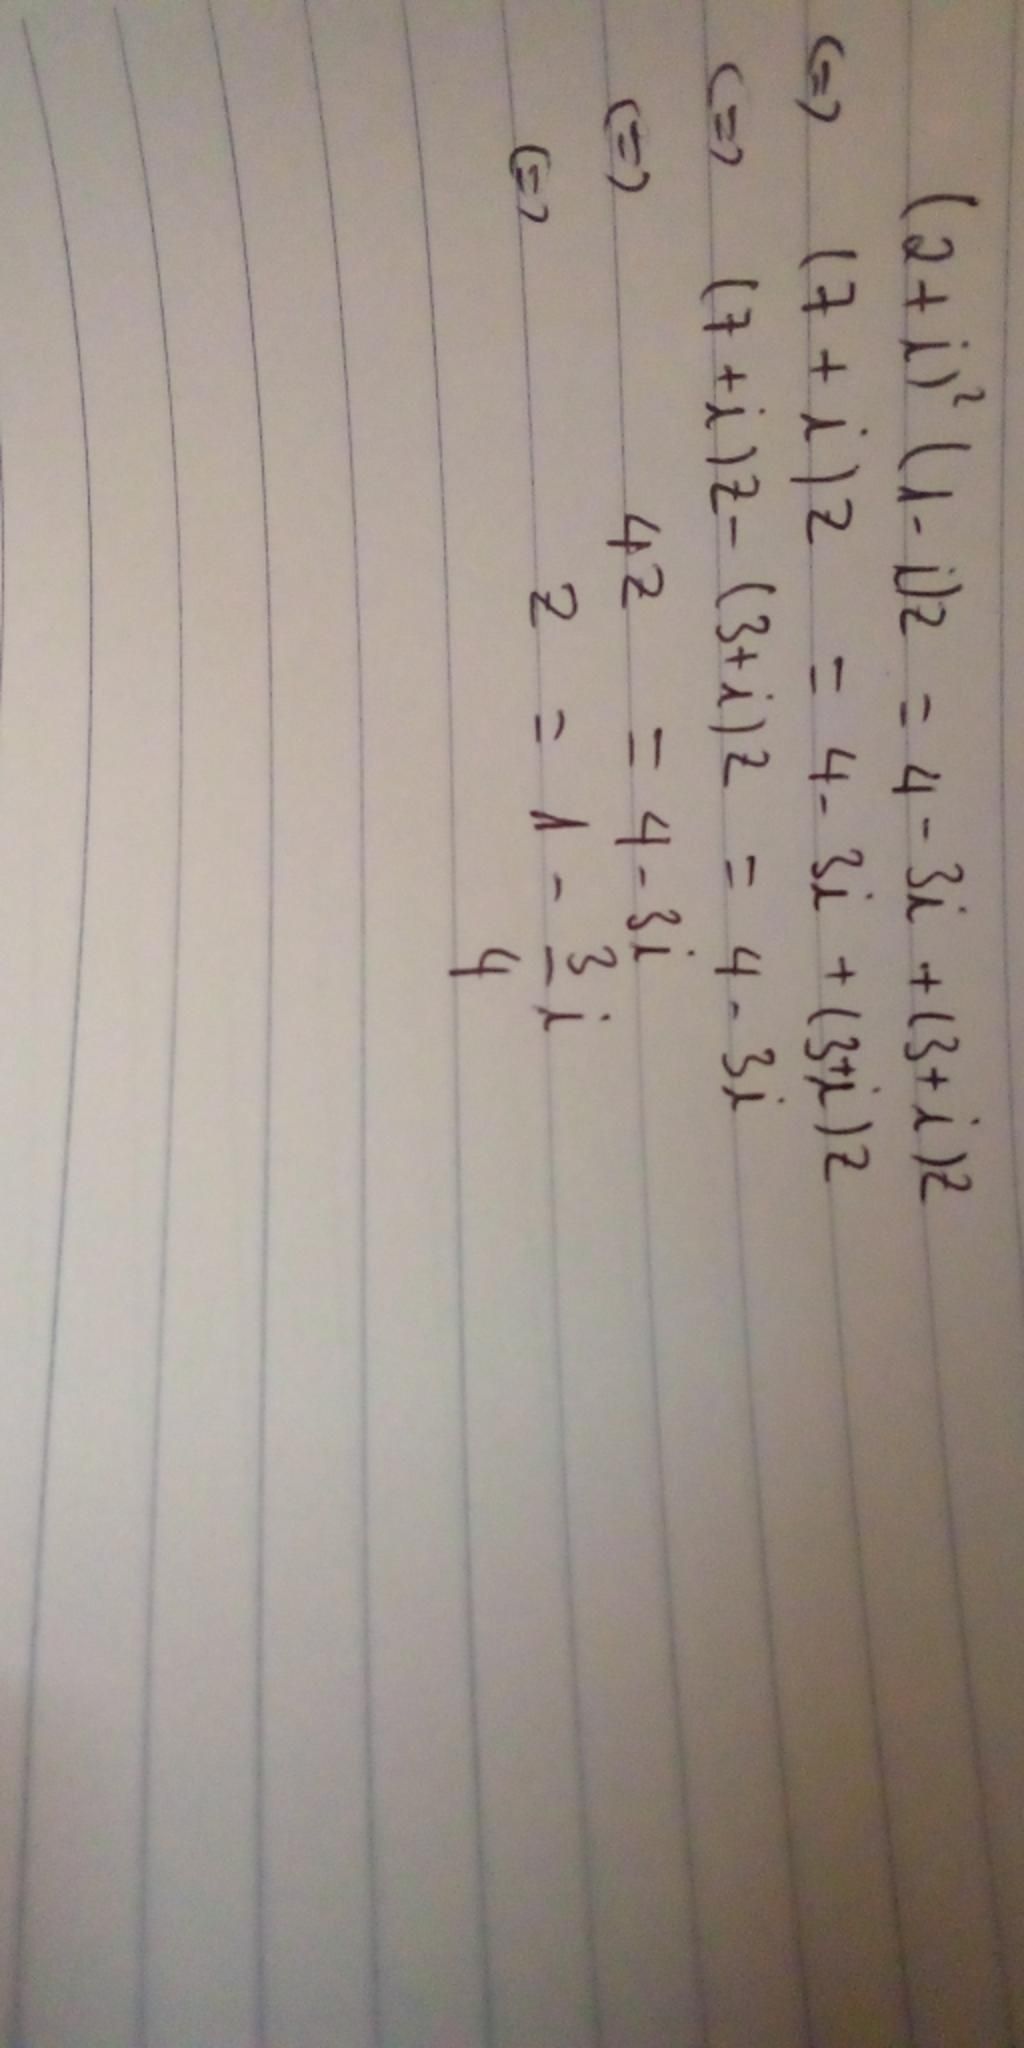 (2+i)²(1-i)z = 4-3i +(3+i)z
(=) (7+i)z = 4-3i +(3+i)z
(=) (7+i)z-(3+i)z = 4-3i
(=) 4z = 4-3i
(=) z = 1 - 3/4 i